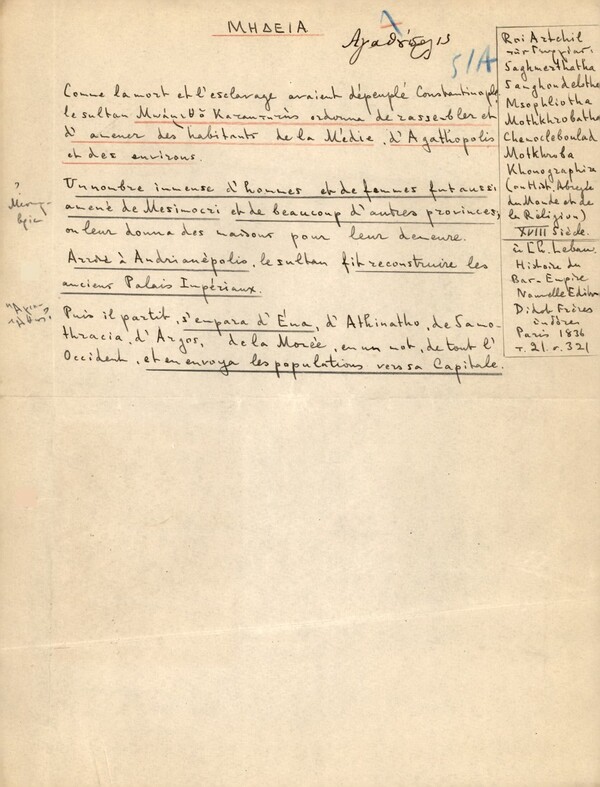 ΜΗΔΕΙΑ
Αγαθόπολις
51A
Comme la mort et l'esclavage avaient dépeuplé Constantinople
le sultan ordonna de rassembler et
d'amener des habitants de la Médie, d'Agathopolis
et des environs.
Un nombre immense d'hommes et de femmes fut aussi
amené de Mesimocri et de beaucoup d'autres provinces,
on leur donna des maisons pour leur demeure.
Arrivé à Andrianépolis, le sultan fit reconstruire les
anciens Palais Impériaux.
Puis il partit, s'empara d'Ena, d'Athinatho, de Samo-
thracia, d'Argos, de la Morée, en un mot, de tout l'
Occident, et en envoya les populations vers sa Capitale.
?
Roi Artchil
Saghmerthatha
Sanghondelotha
Msophliotha
Mothkhrobatha
Chenocleboulad
Motkhroba
Khonographira
(ou Hist. Abrégée
du Monde et de
la Réligion)
XVIII Siècle.
à Ch. Lebau.
Histoire du
Bas-Empire
Nouvelle Edition
Didot Frères
Paris 1836
τ. 21. σ. 321